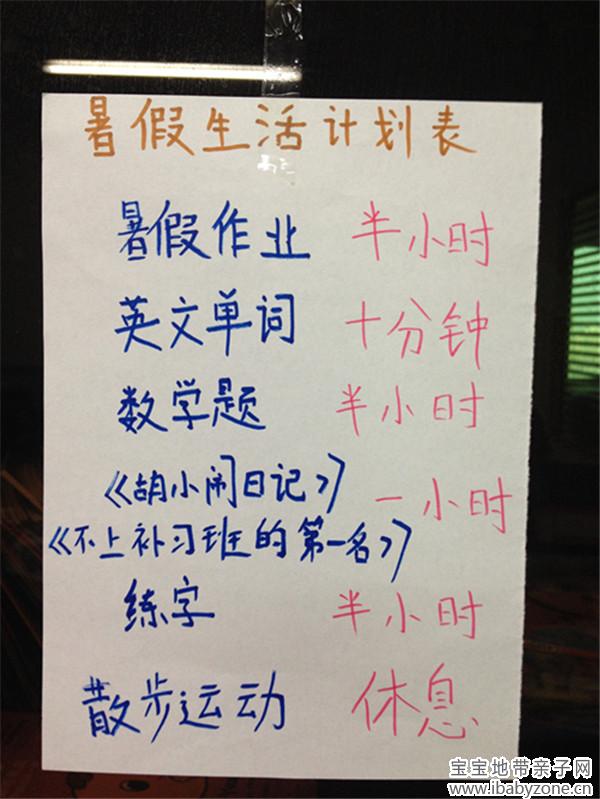 暑假生活计划表
暑假作业 半小时
英文单词 十分钟
数学题 半小时
《胡小闹日记》 一小时
《不上补习班的第一名》
练字 半小时
散步运动 休息
宝宝地带亲子网
www.ibabyzone.cn